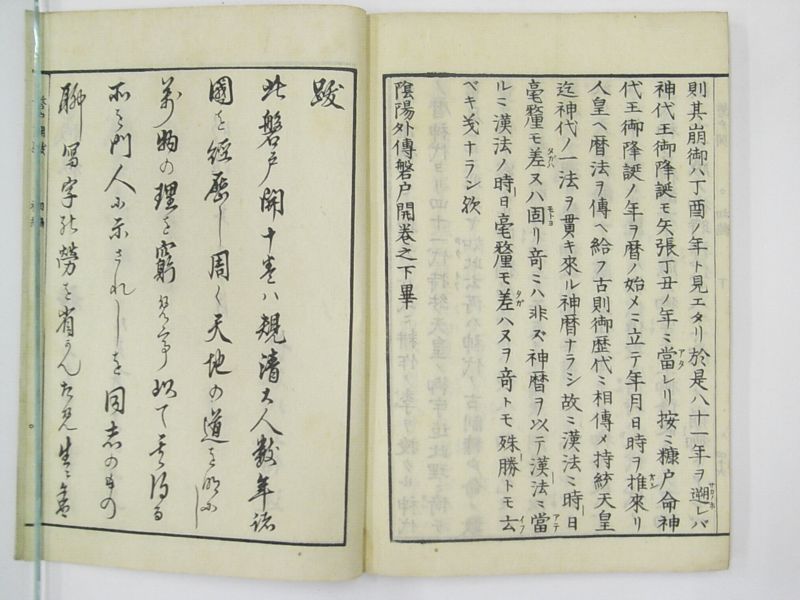 則其崩御ハ丁酉ノ年ト見エタリ於是八十一年ヲ遡レバ
神代王御降誕モ矢張丁丑ノ年ミ當レリ按ミ糠戸命神
代王御降誕ノ年ヲ暦ノ始メミ立テ年月日時ヲ推來リ
人皇ヘ暦法ヲ傳ヘ給フ古則御歴代ミ相傳メ持統天皇
迄神代ノ一法ヲ貫キ來ル神暦ナラシ故ミ漢法ミ時日
毫釐モ差ヌハ固リ竒ミハ非ズ神暦ヲ以テ漢法ミ當
ルミ漢法ノ時日毫釐モ差ハヌヲ竒トモ殊勝トモ云
ベキ㐧ナラン欤
陰陽外傳磐戸開卷之下畢
跋
此磐戸開十巻ハ規清大人数年諸
國を經歴し周く天地の道を
萬物の理を窮 以て其
門人に示されしを同志のもの
聊寫字の勞を省かん